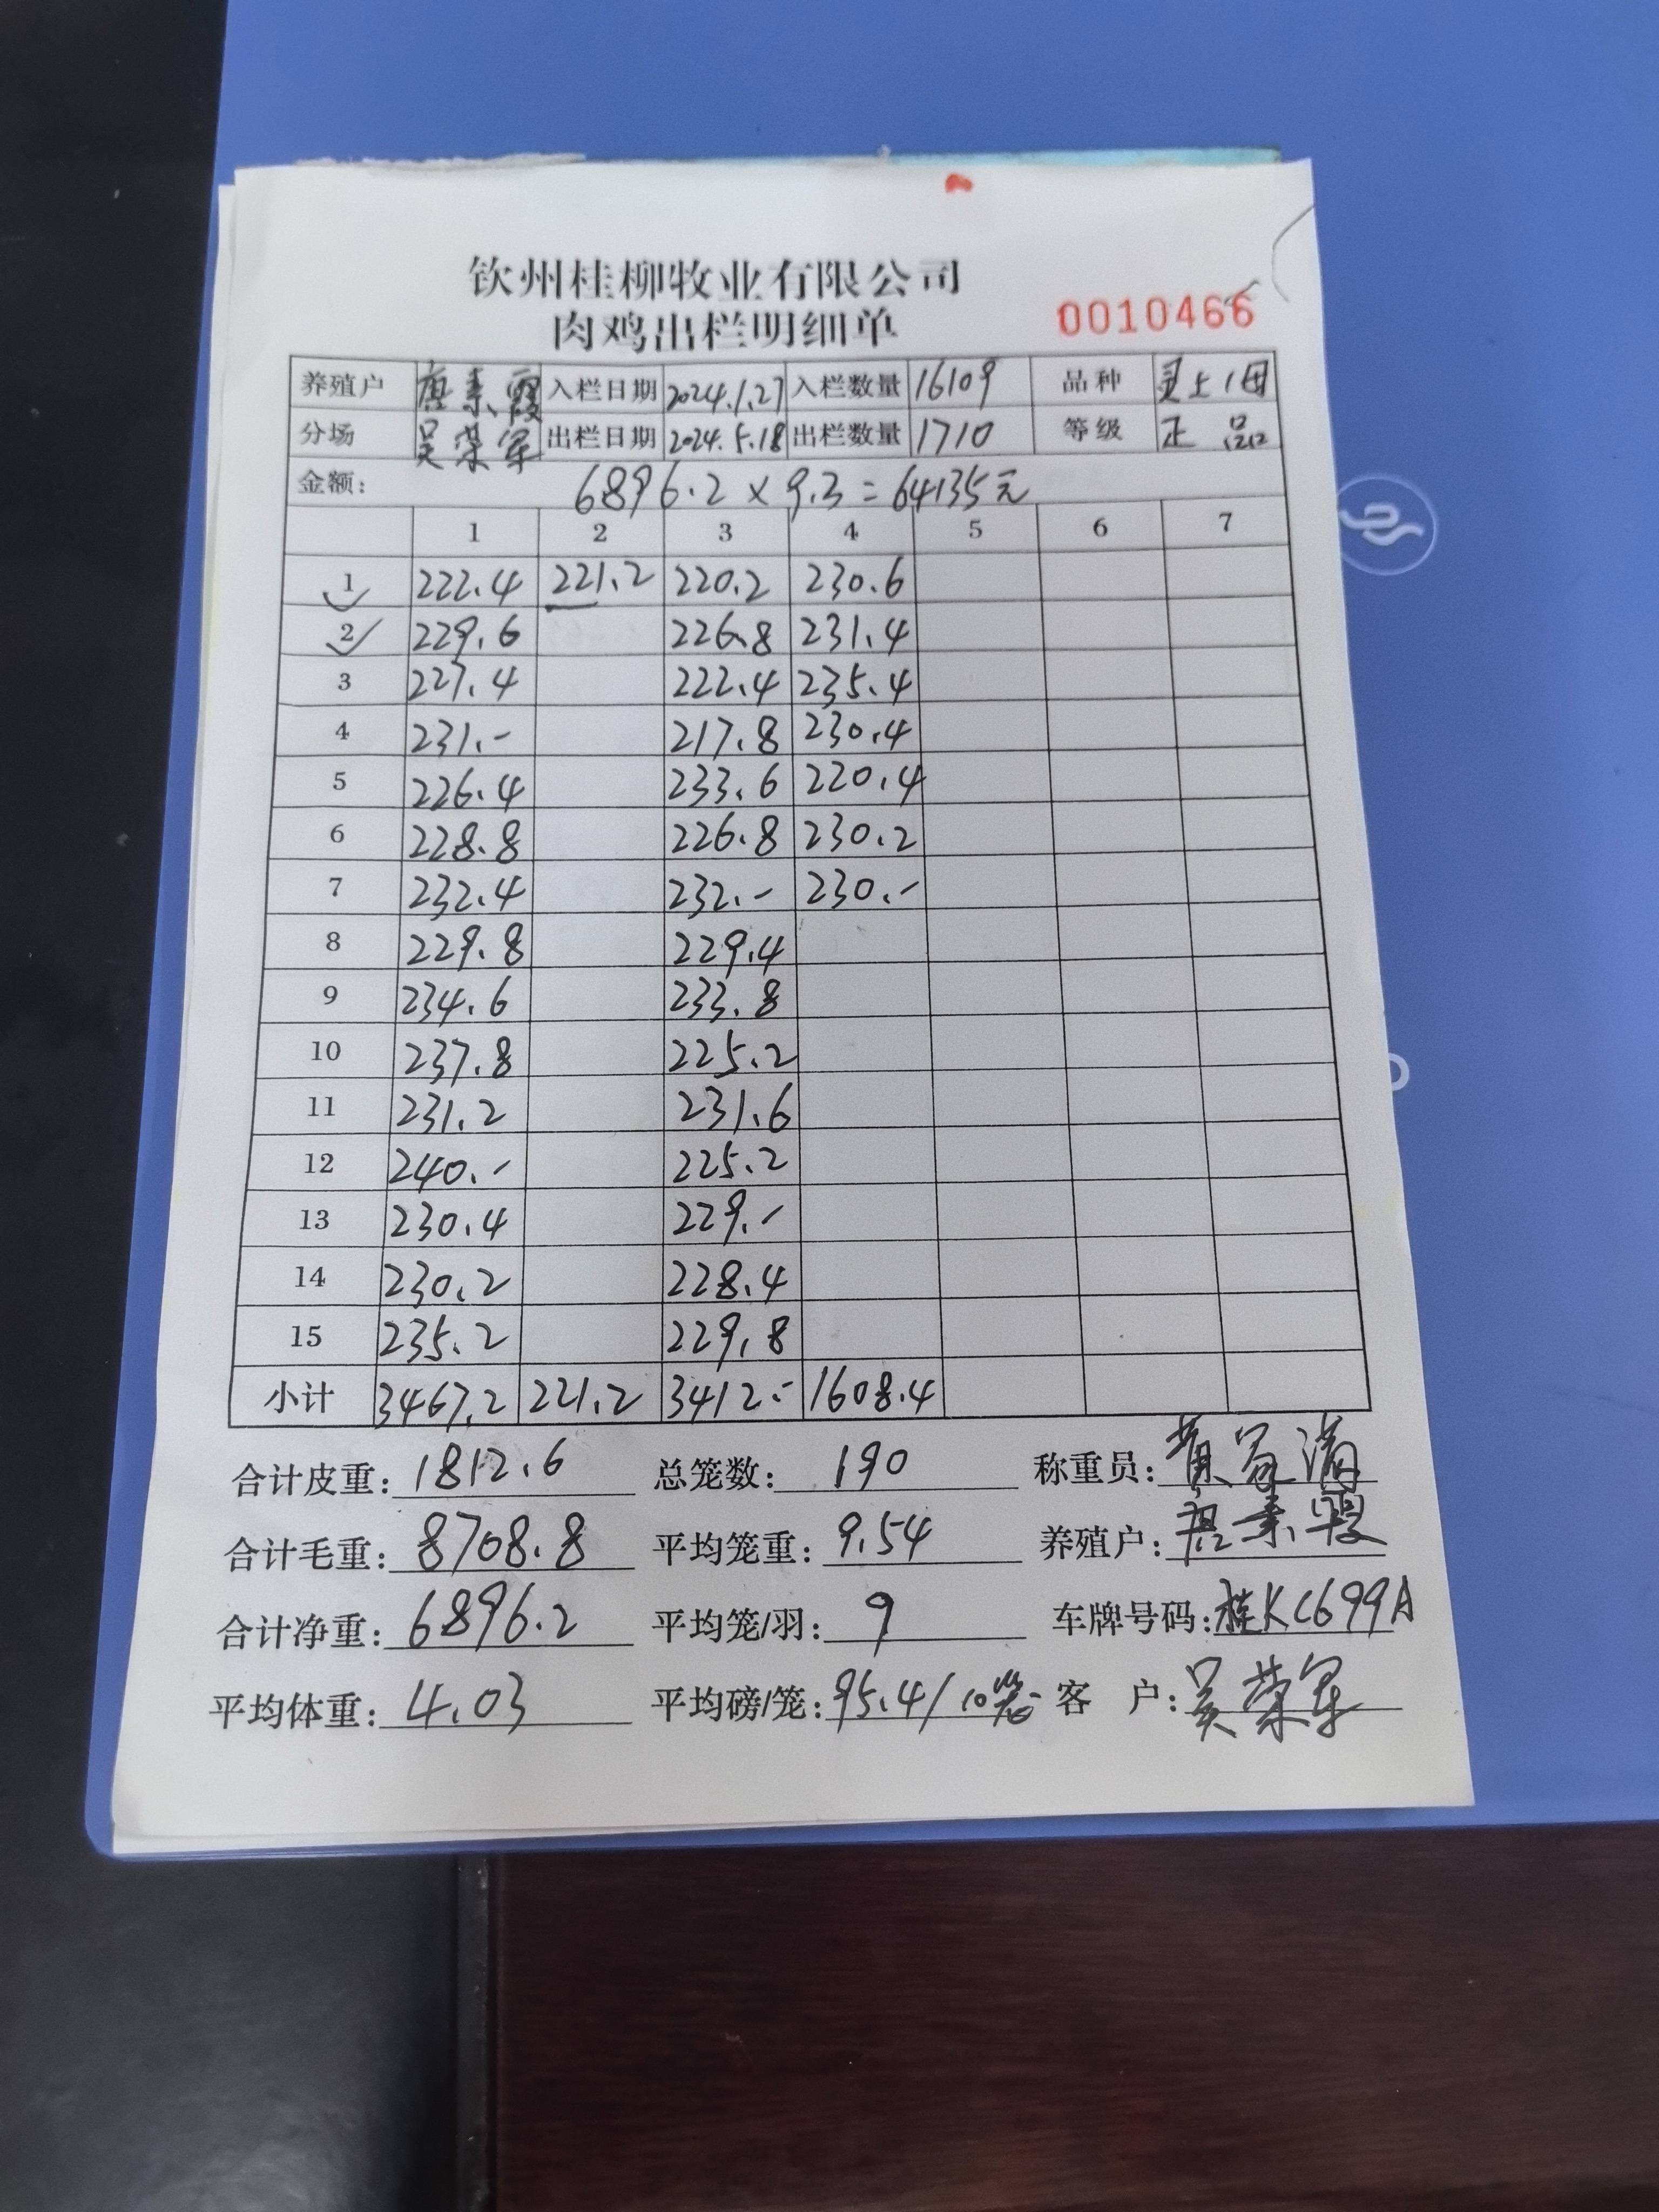 钦州桂柳牧业有限公司
肉鸡出栏明细单
0010466
养殖户 唐素霞 入栏日期 2024.1.27 入栏数量 16109 品种 灵上1母
分场 吴荣军 出栏日期 2024.5.18 出栏数量 1710 等级 正品
金额: 6896.2×9.3=64135元
1 2 3 4 5 6 7
1 222.4 221.2 220.2 230.6
2 229.6 226.8 231.4
3 227.4 222.4 235.4
4 231.- 217.8 230.4
5 226.4 233.6 220.4
6 228.8 226.8 230.2
7 232.4 232.- 230.-
8 229.8 229.4
9 234.6 233.8
10 237.8 225.2
11 231.2 231.6
12 240.- 225.2
13 230.4 229.-
14 230.2 228.4
15 235.2 229.8
小计 3467.2 221.2 3412.- 1608.4
合计皮重: 1812.6 总笼数: 190 称重员:
合计毛重: 8708.8 平均笼重: 9.54 养殖户: 唐素霞
合计净重: 6896.2 平均笼/羽: 9 车牌号码: 桂KC699A
平均体重: 4.03 平均磅/笼: 95.4/10笼 客户: 吴荣军